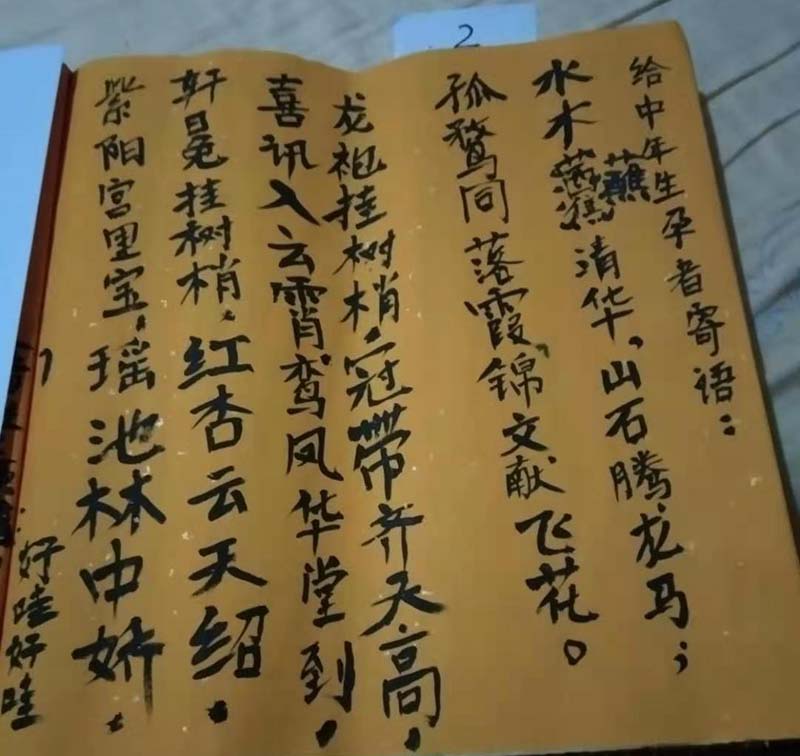 2
给中年生孕者寄语：
水木蘸清华，山石腾龙马；
孤鹜同落霞锦文献飞花。
龙袍挂树梢，冠帶齐天高，
喜讯入云霄鸾凤华堂到，
轩冕挂树梢，红杏云天绍。
紫阳宫里宝，瑶池林中娇。
好哇好哇